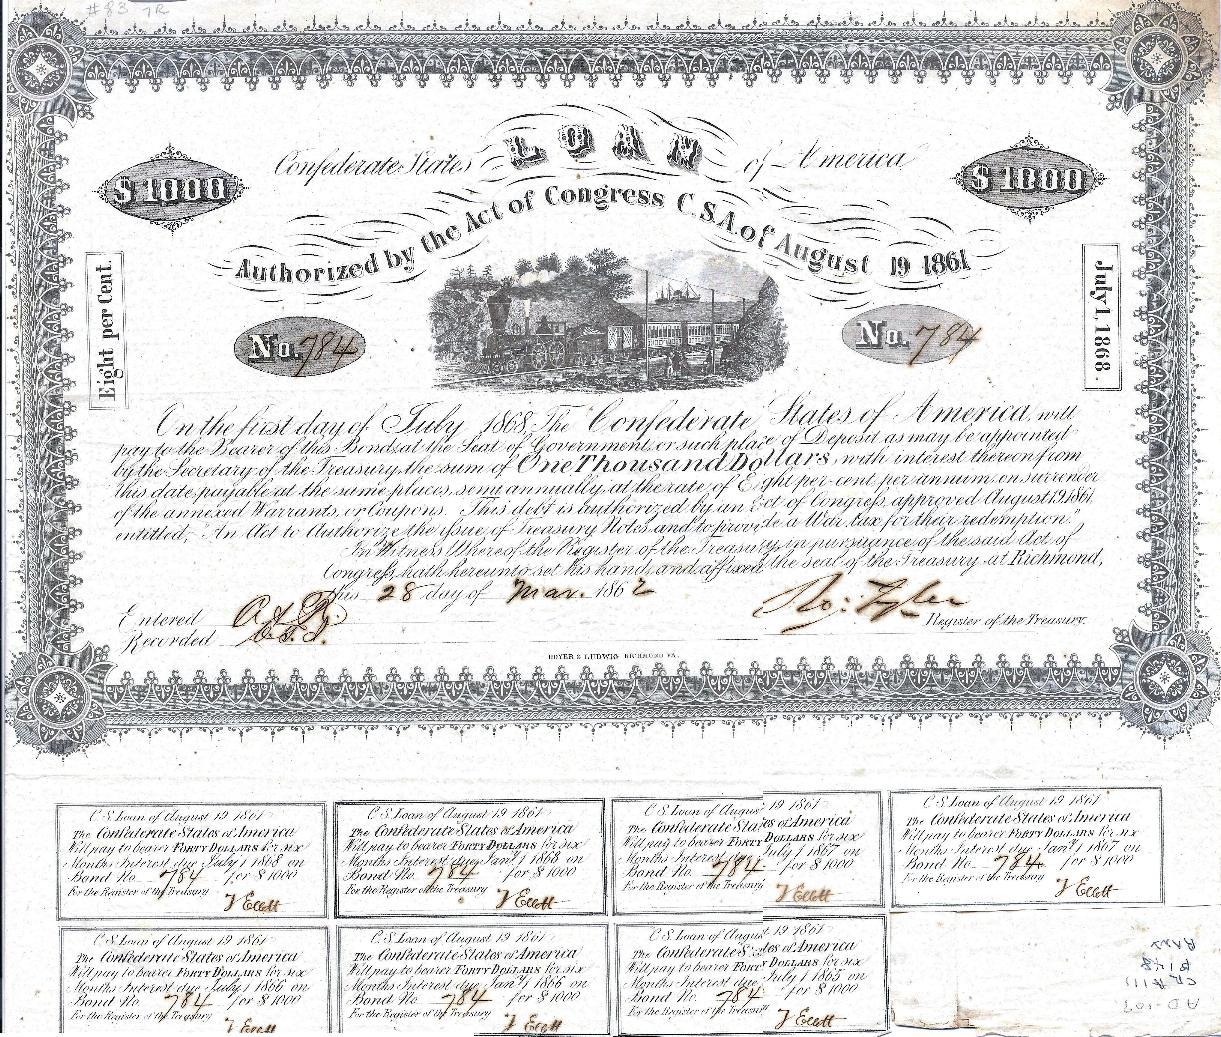 #83 7R
Confederate States LOAN of America
$1000 $1000
Authorized by the Act of Congress C.S.A. of August 19 1861
Eight per Cent.
July 1, 1868.
No. 784
No. 784
On the first day of July 1868, The Confederate States of America, will
pay to the Bearer of this Bond, at the Seat of Government, or such place of Deposit as may be appointed
by the Secretary of the Treasury, the sum of One Thousand Dollars, with interest thereon from
this date, payable at the same places, semi annually, at the rate of Eight per cent per annum, on surrender
of the annexed Warrants, or Coupons. This debt is authorized by an Act of Congress approved August 19, 1861
entitled, "An Act to Authorize the issue of Treasury Notes, and to provide a War tax for their redemption."
In Witness Whereof the Register of the Treasury, in pursuance of the said Act of
Congress, hath hereunto set his hand, and affixed the seal of the Treasury at Richmond,
this 28 day of Mar. 1862
Entered
Recorded
Ro: Tyler Register of the Treasury.
HOYER & LUDWIG RICHMOND VA.
C. S. Loan of August 19 1861
The Confederate States of America
Will pay to bearer FORTY DOLLARS for six
Months Interest due July 1 1868 on
Bond No. 784 for $1000
For the Register of the Treasury
J Ellett
C. S. Loan of August 19 1861
The Confederate States of America
Will pay to bearer FORTY DOLLARS for six
Months Interest due Jany 1 1868 on
Bond No. 784 for $1000
For the Register of the Treasury
J Ellett
C. S. Loan of August 19 1861
The Confederate States of America
Will pay to bearer FORTY DOLLARS for six
Months Interest due July 1 1867 on
Bond No. 784 for $1000
For the Register of the Treasury
J Ellett
C. S. Loan of August 19 1861
The Confederate States of America
Will pay to bearer FORTY DOLLARS for six
Months Interest due Jany 1 1867 on
Bond No. 784 for $1000
For the Register of the Treasury
J Ellett
C. S. Loan of August 19 1861
The Confederate States of America
Will pay to bearer FORTY DOLLARS for six
Months Interest due July 1 1866 on
Bond No. 784 for $1000
For the Register of the Treasury
J Ellett
C. S. Loan of August 19 1861
The Confederate States of America
Will pay to bearer FORTY DOLLARS for six
Months Interest due Jany 1 1866 on
Bond No. 784 for $1000
For the Register of the Treasury
J Ellett
C. S. Loan of August 19 1861
The Confederate States of America
Will pay to bearer FORTY DOLLARS for six
Months Interest due July 1 1865 on
Bond No. 784 for $1000
For the Register of the Treasury
J Ellett
AD-107
CR # 111
B 148